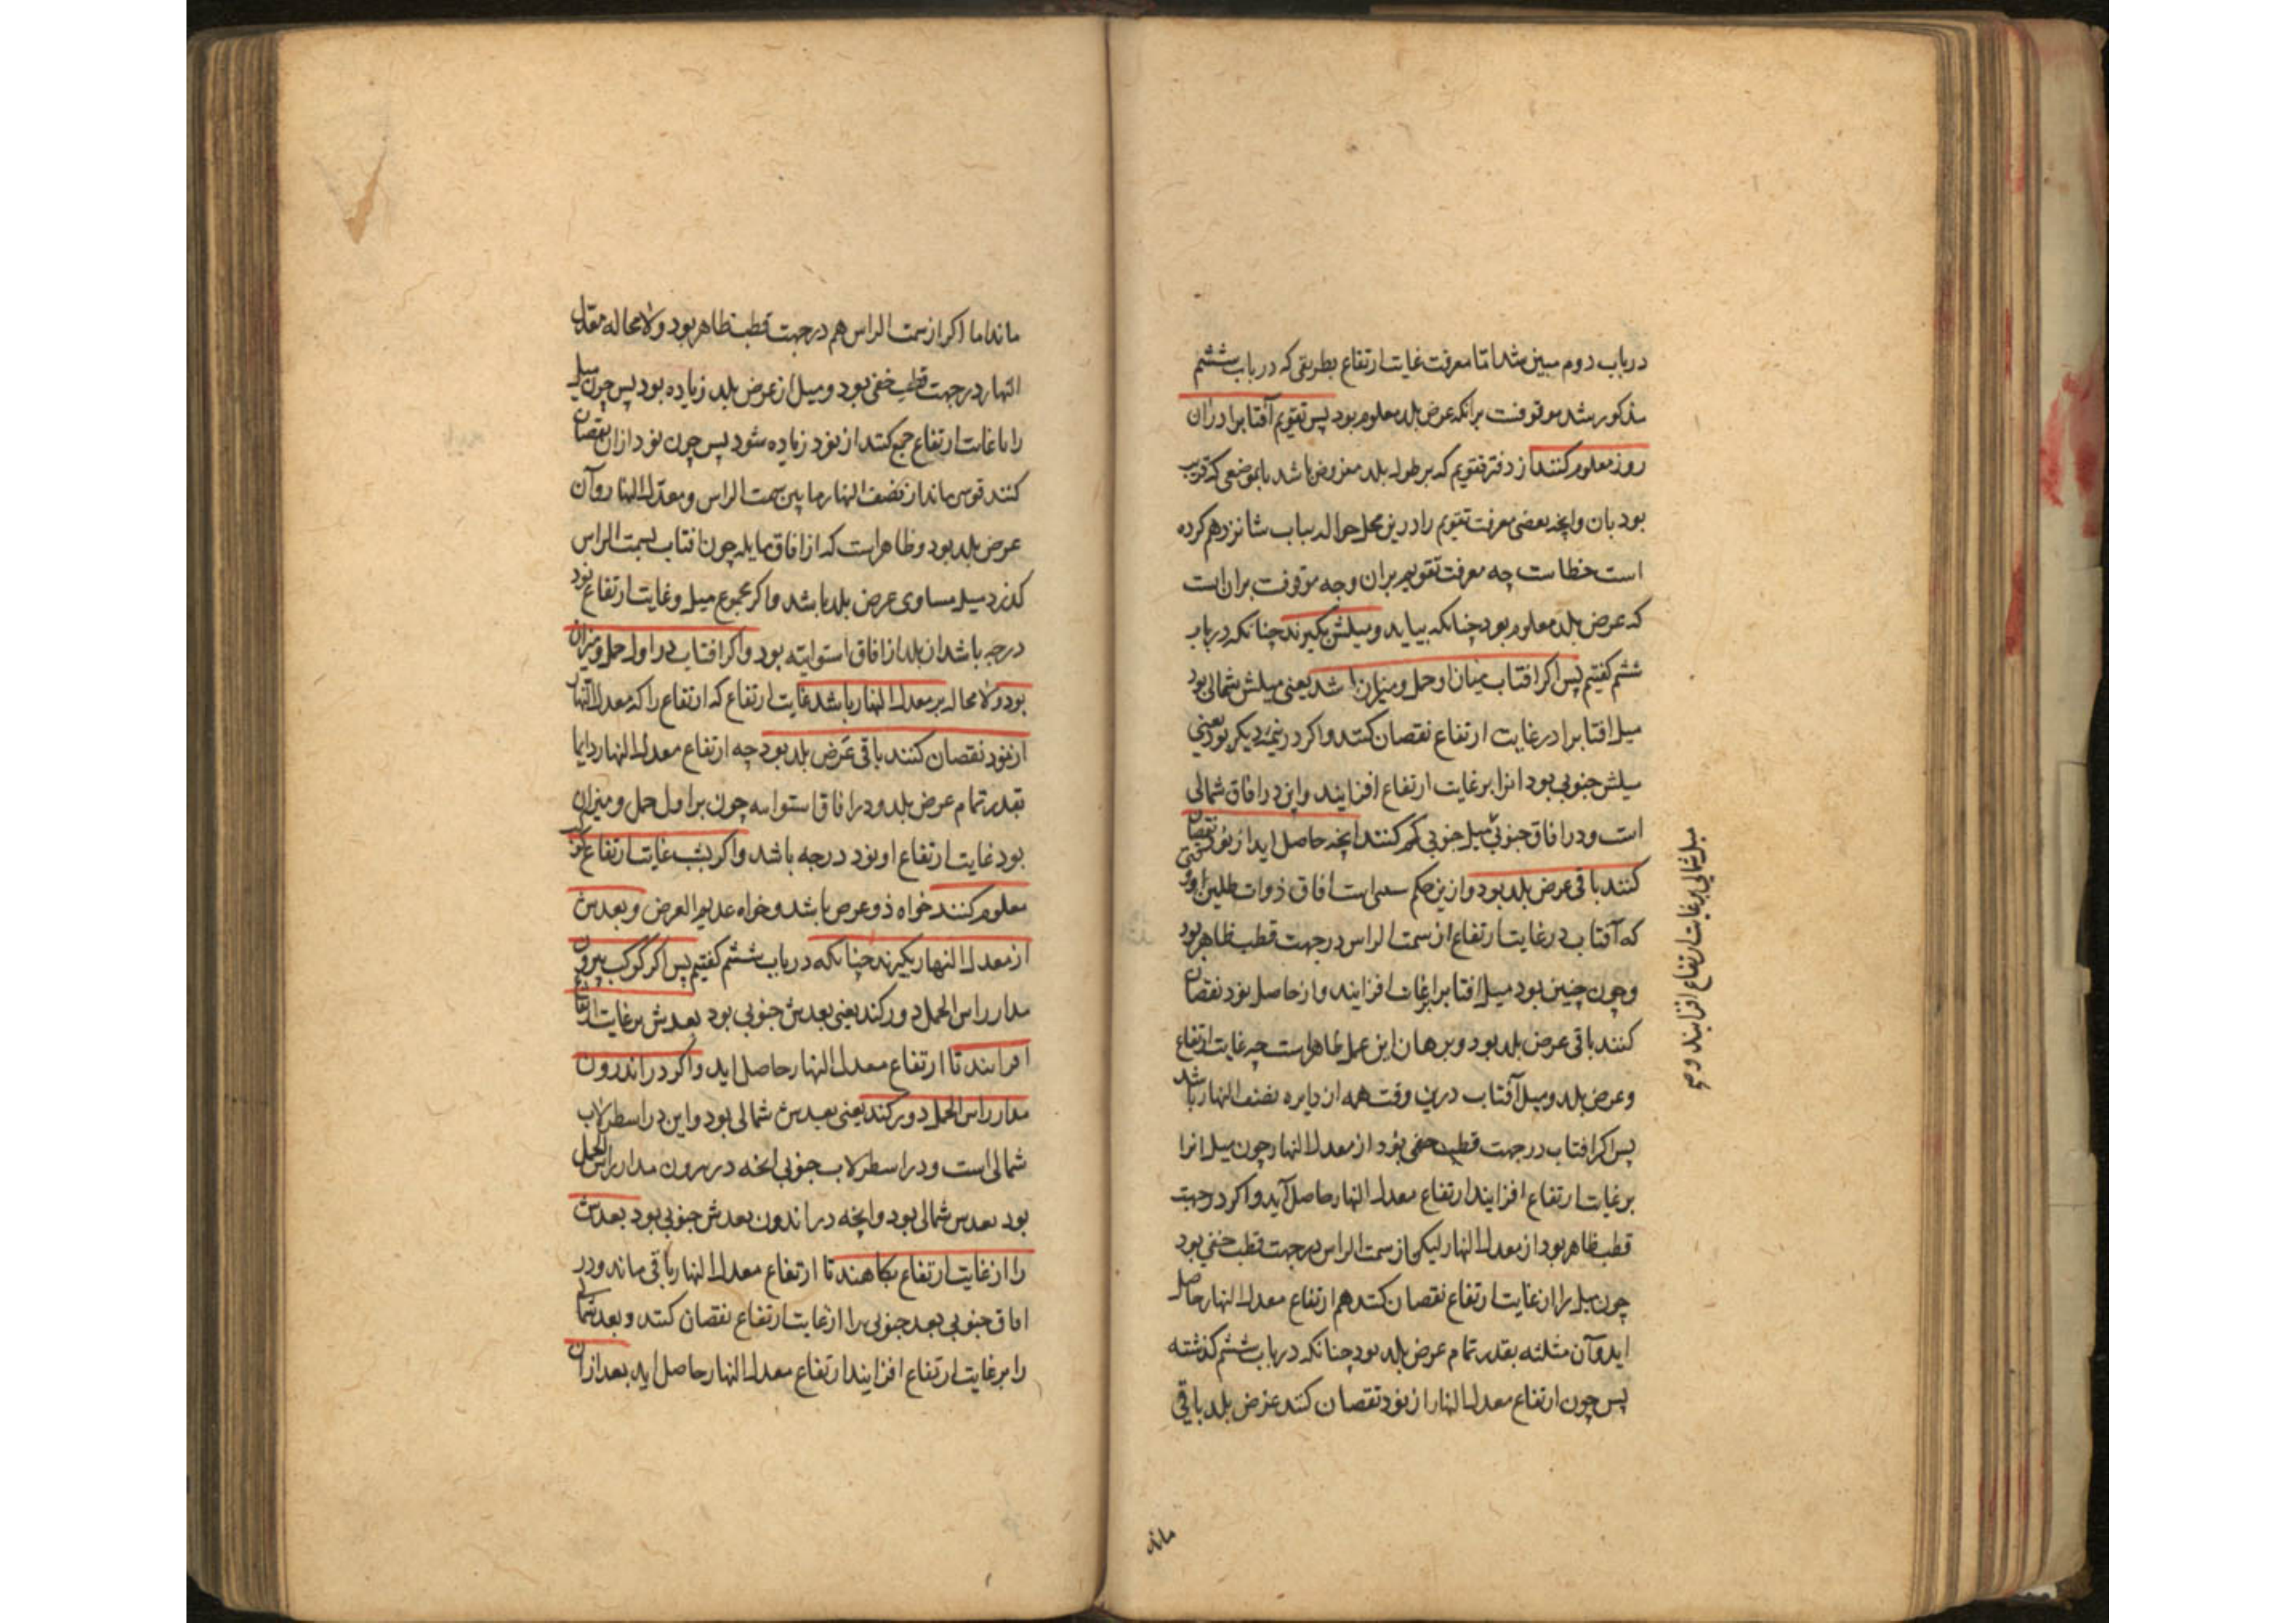 در باب دوم مبین شد اما معرفت غایت ارتفاع بطریقی که در باب ششم
مذکور شد موقوفست برانکه عرض بلد معلوم بود پس تقویم آفتابرا دران
روز معلوم کنند از دفتر تقویم که بر طول بلد مفروض باشد یا بموضعی که قریب
بود بان وانچه بعضی معرفت تقویم را درین محل حواله بباب شانزدهم کرده
است خطاست چه معرفت تقویم بران وجه موقوفست بران است
که عرض بلد معلوم بود چنانکه بیاید و میلش بگیرند چنانکه در باب
ششم گفتیم پس اگر افتاب میان او حمل و میزان باشد یعنی میلش شمالی بود
میل افتابرا در غایت ارتفاع نقصان کنند و اگر در نیمه دیگر بود یعنی
میلش جنوبی بود انرا بر غایت ارتفاع افزایند و این در افاق شمالی
است و در افاق جنوبی میل جنوبی کم کنند انچه حاصل اید از نود نقصان
کنند باقی عرض بلد بود و ازین حکم است افاق ذوات ظلین
که آفتاب در غایت ارتفاع از سمت الراس در جهت قطب ظاهر بود
و چون چنین بود میل افتابرا بر غایت افزایند و از حاصل نود نقصان
کنند باقی عرض بلد بود و برهان این عمل ظاهر است چه غایت ارتفاع
و عرض بلد و میل آفتاب درین وقت همه از دایره نصف النهار باشد
پس اگر افتاب در جهت قطب خفی بود از معدل النهار چون میل انرا
بر غایت ارتفاع افزایند ارتفاع معدل النهار حاصل آید و اگر در جهت
قطب ظاهر بود از معدل النهار لیکن از سمت الراس در جهت قطب خفی بود
چون میل را از غایت ارتفاع نقصان کنند هم ارتفاع معدل النهار حاصل
اید و آن بقدر تمام عرض بلد بود چنانکه در باب ششم گذشته
پس چون ارتفاع معدل النهار را از نود نقصان کنند عرض بلد باقی
ماند
میل شمالی بر غایت ارتفاع افزایند و
ماند اما اگر از سمت الراس هم در جهت قطب ظاهر بود و لا محاله معدل
النهار در جهت قطب خفی بود و میل از عرض بلد زیاده بود پس چون میل
را با غایت ارتفاع جمع کنند از نود زیاده شود پس چون نود ازان نقصان
کنند قوسی ماند از نصف النهار ما بین سمت الراس و معدل النهار و آن
عرض بلد بود و ظاهر است که از افاق مایله چون افتاب بسمت الراس
گذرد میل مساوی عرض بلد باشد و اگر مجموع میل و غایت ارتفاع نود
درجه باشد ان بلد از افاق استوایه بود و اگر افتاب در اول حمل و میزان
بود و لا محاله بر معدل النهار باشد غایت ارتفاع که ارتفاع را که معدل النهار
از نود نقصان کنند باقی عرض بلد بود چه ارتفاع معدل النهار دایما
بقدر تمام عرض بلد و در افاق استوایه چون بر اول حمل و میزان
بود غایت ارتفاع او نود درجه باشد و اگر بشب غایت ارتفاع
معلوم کنند خواه ذو عرض باشد و خواه عدیم العرض و بعدش
از معدل النهار بگیرند چنانکه در باب ششم گفتیم پس اگر کوکب بیرون
مدار راس الحمل دور کند یعنی بعدش جنوبی بود بعدش بر غایت ارتفاع
افزایند تا ارتفاع معدل النهار حاصل اید و اگر در اندرون
مدار راس الحمل دور کند یعنی بعدش شمالی بود و این در اسطرلاب
شمالی است و در اسطرلاب جنوبی انچه در بیرون مدار راس الحمل
بود بعدش شمالی بود و انچه در اندرون بعدش جنوبی بود بعدش
را از غایت ارتفاع بکاهند تا ارتفاع معدل النهار باقی ماند و در
افاق جنوبی بعد جنوبی را از غایت ارتفاع نقصان کنند و بعد شمالی
را بر غایت ارتفاع افزایند ارتفاع معدل النهار حاصل اید بعد ازان